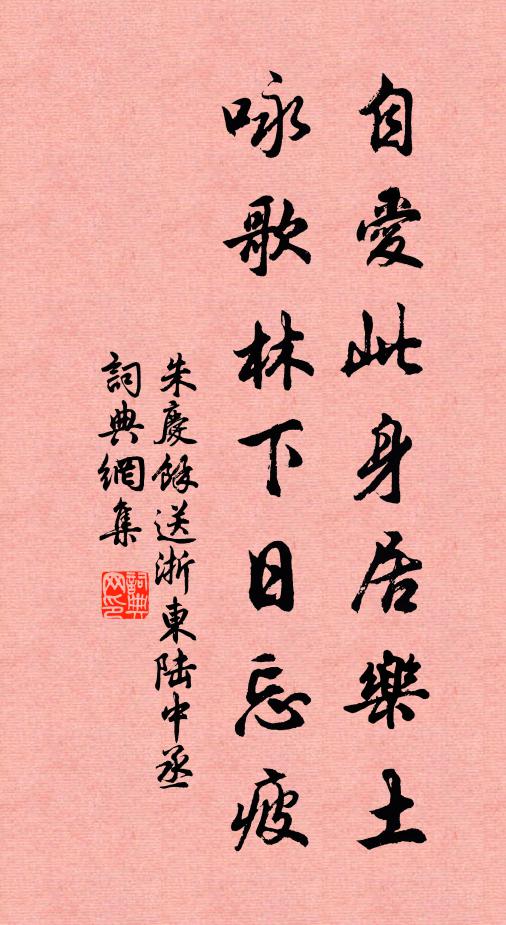 自愛此身居樂土
咏歌林下日忘疲
朱慶餘送浙東陸中丞
詞典網集
詞典网印